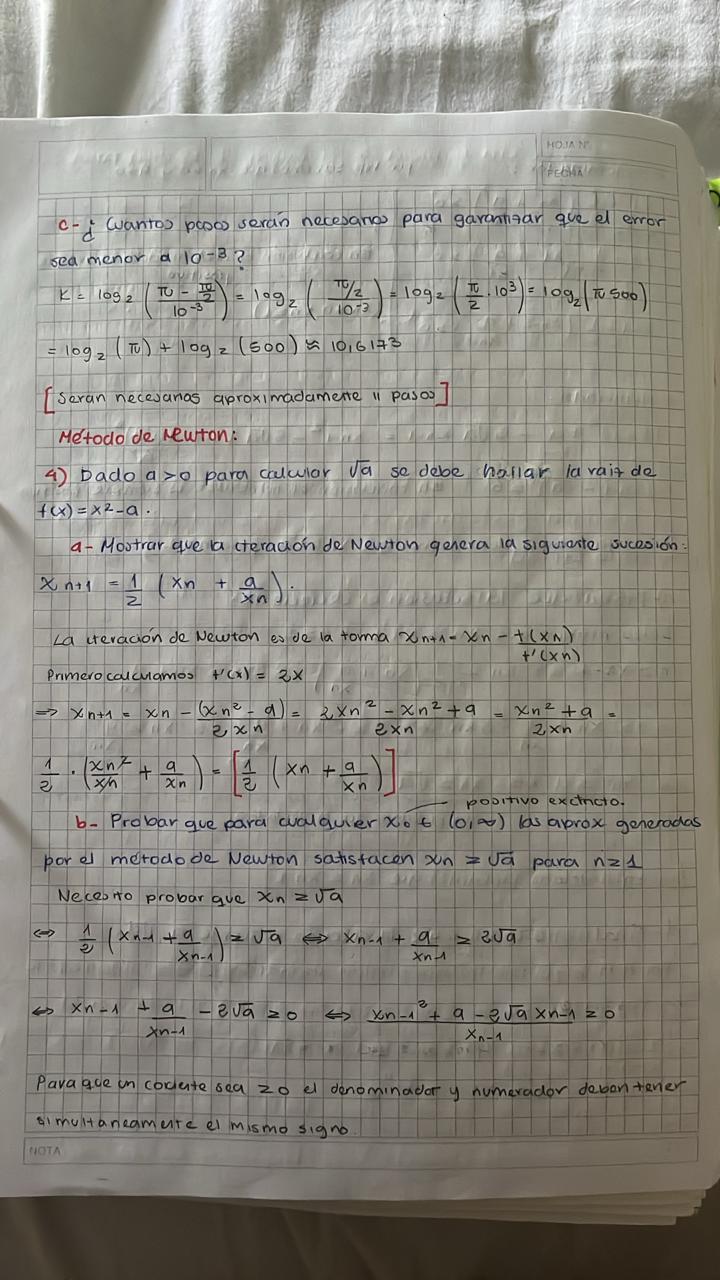 HOJA N°
FECHA
c- ¿Cuantos pasos serán necesarios para garantizar que el error
sea menor a 10⁻³?
K = log₂ ((π - π/2)/10⁻³) = log₂ ((π/2)/10⁻³) = log₂ (π/2 · 10³) = log₂ (π 500)
= log₂ (π) + log₂ (500) ≈ 10,6173
[Seran necesarias aproximadamente 11 pasos]
Método de Newton:
4) Dado a > 0 para calcular √a se debe hallar la raiz de
f(x) = x² - a.
a- Mostrar que la iteración de Newton genera la siguiente sucesión:
xn+1 = 1/2 (xn + a/xn).
La iteración de Newton es de la forma xn+1 = xn - f(xn)/f'(xn)
Primero calculamos f'(x) = 2x
⇒ xn+1 = xn - (xn² - a)/2xn = (2xn² - xn² + a)/2xn = (xn² + a)/2xn =
1/2 · (xn²/xn + a/xn) = [1/2 (xn + a/xn)]
positivo
b- Probar que para cualquier x₀ ∈ (0,∞) las aprox generadas
por el método de Newton satisfacen xn ≥ √a para n ≥ 1
Necesito probar que xn ≥ √a
⇔ 1/2 (xn-1 + a/xn-1) ≥ √a ⇔ xn-1 + a/xn-1 ≥ 2√a
⇔ xn-1 + a/xn-1 - 2√a ≥ 0 ⇔ (xn-1² + a - 2√a xn-1)/xn-1 ≥ 0
Para que un cociente sea ≥0 el denominador y numerador deben tener
simultaneamente el mismo signo.
NOTA